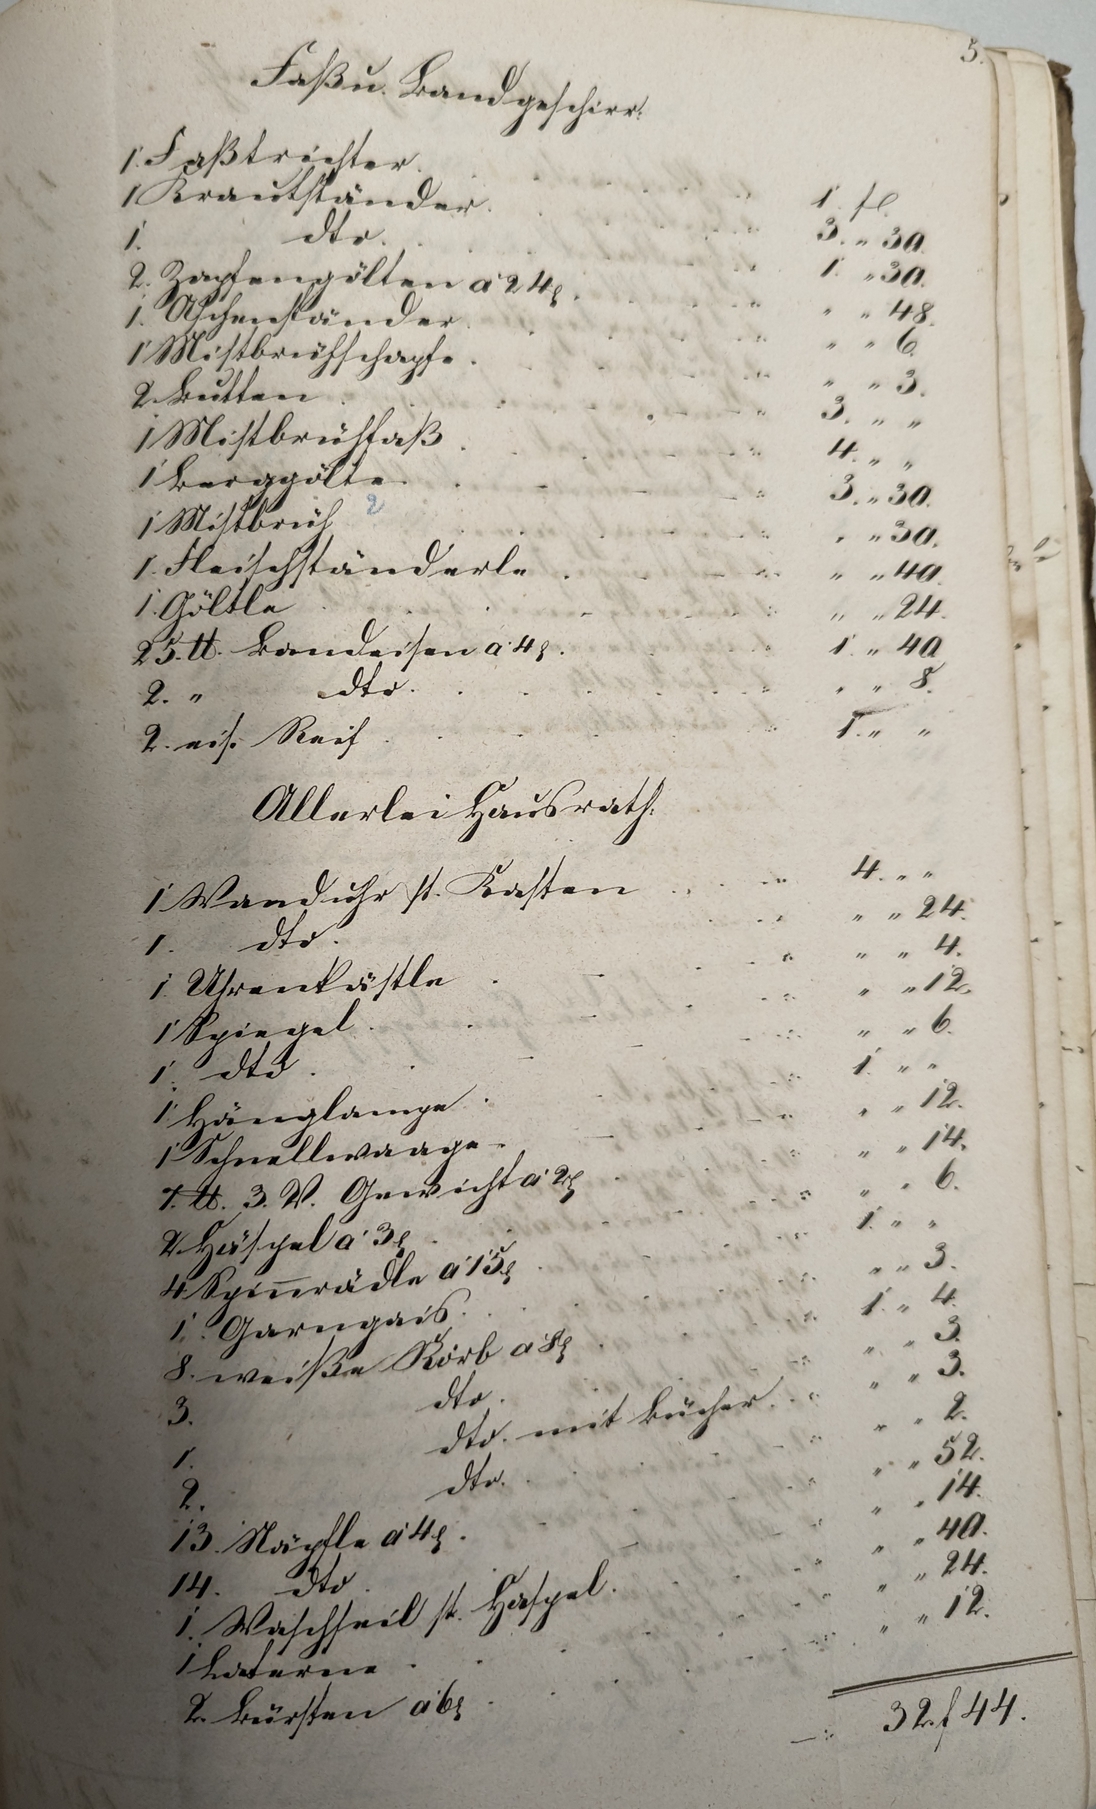 5.
Faß u. Bandgeschirr.
1. Faßtrichter. 1. f.
1 Krautständer. 3. " 30.
1. dto. 1. " 30.
2. Zapfengölten a 24 " " 48.
1. Aschenständer. " " 6.
1 Mistbrühschapfe. " " 3.
2. Butten 3. " "
1 Mistbrühfaß. 4. " "
1 Berggölte. 3. " 30.
1 Mistbrüh 2 " " 30.
1. Fleischständerle " " 40.
1. Göltle " " 24.
25. ℔. Bandeisen a 4 1. " 40
2. " dto. " " 8.
2. eis. Reif 1. " "
Allerlei Hausrath.
1 Wanduhr st. Kasten 4. " "
1. dto. " " 24.
1. Uhrenkästle " " 4.
1 Spiegel. " " 12.
1. dto. " " 6.
1 Hänglampe 1. " "
1 Schnellwaage. " " 12.
7. ℔. 3. V. Gewicht a 2 " " 14.
2 Häspel a 3 " " 6.
4 Spinnrädle a 15 1. " "
1. Garngais. " " 3.
8. weiße Körb a 8 1. " 4.
3. dto. " " 3.
1. dto. mit Bücher. " " 3.
2. dto. " " 2.
13. Näpfle a 4 " " 52.
14. dto. " " 14.
1. Waschseil st. Haspel. " " 40.
1 Laterne " " 24.
2. Bürsten a 6 " " 12.
32. f 44.